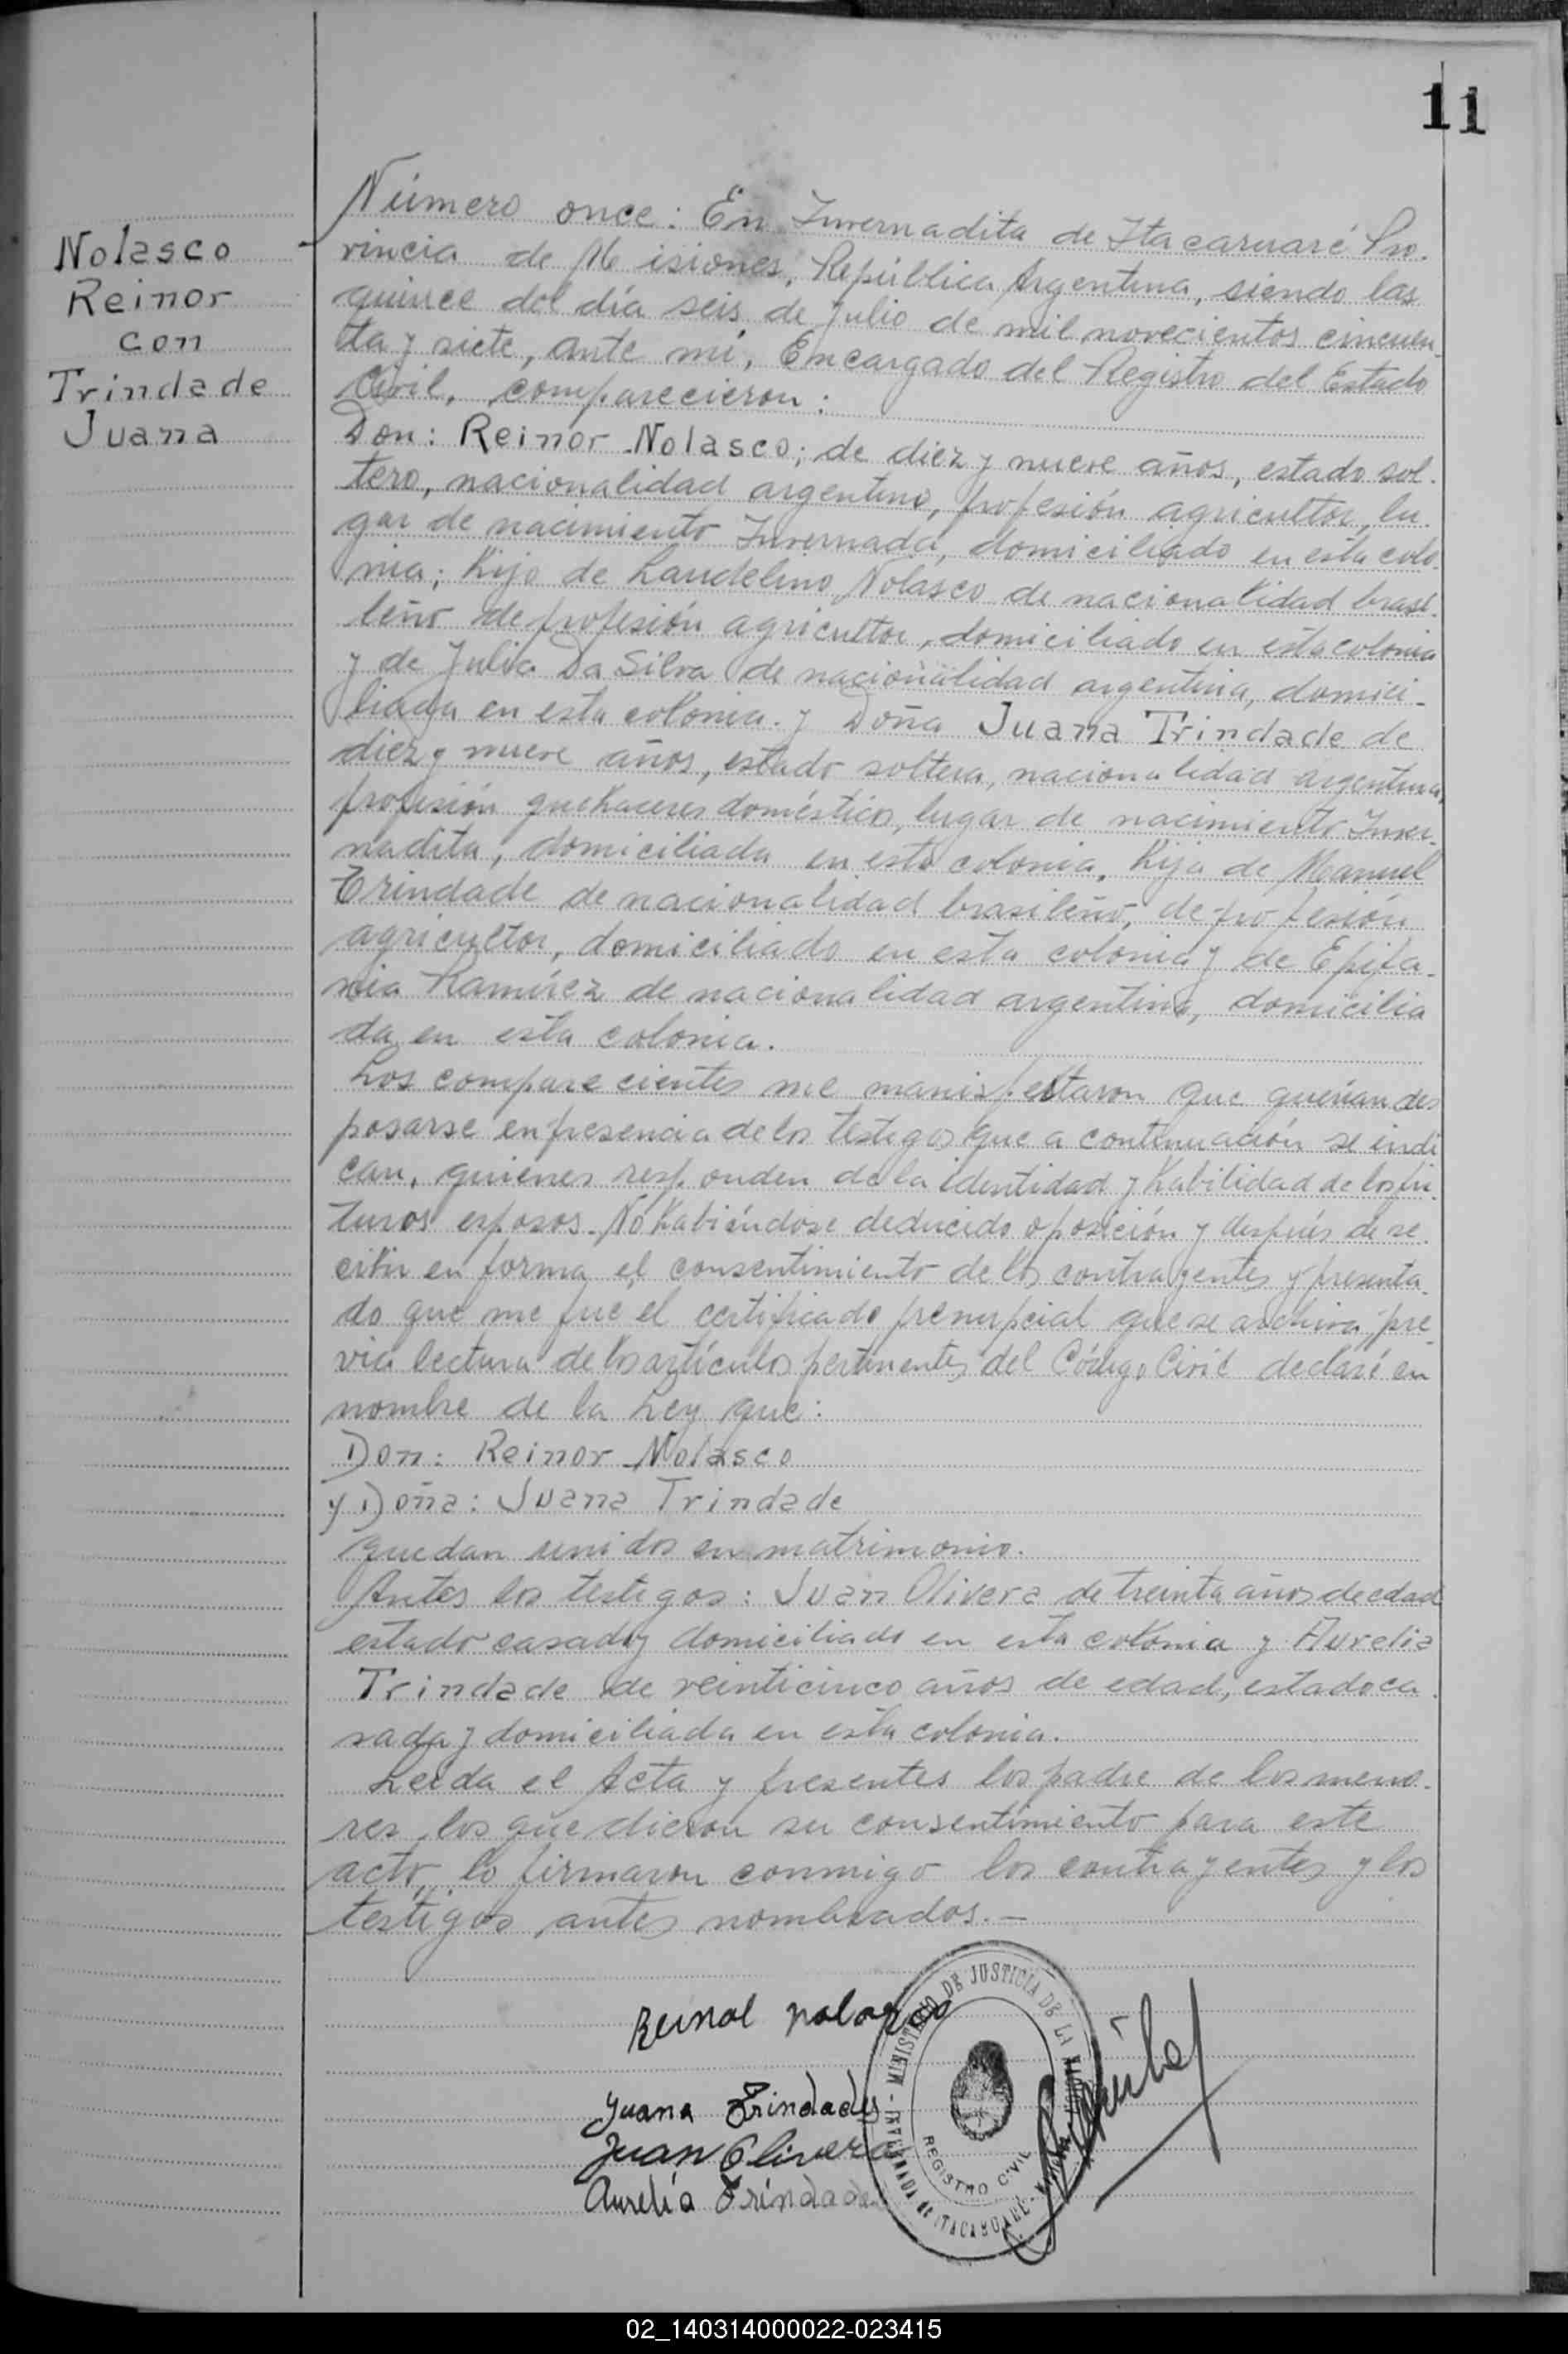 11
Nolasco
Reinor
con
Trindade
Juana
Número once: En Invernadita de Itacaruaré Pro-
vincia de Misiones, República Argentina, siendo las
quince del día seis de Julio de mil novecientos cincuen-
ta y siete, ante mí, Encargado del Registro del Estado
Civil, comparecieron:
Don: Reinor Nolasco; de diez y nueve años, estado sol-
tero, nacionalidad argentino, profesión agricultor, lu-
gar de nacimiento Invernada, domiciliado en esta colo-
nia; hijo de Laudelino Nolasco de nacionalidad brasi-
leño de profesión agricultor, domiciliado en esta colonia
y de Julia Da Silva de nacionalidad argentina, domici-
liada en esta colonia. y Doña Juana Trindade de
diez y nueve años, estado soltera, nacionalidad argentina,
profesión quehaceres doméstico, lugar de nacimiento Inver-
nadita, domiciliada en esta colonia, hija de Manuel
Trindade de nacionalidad brasileño, de profesión
agricultor, domiciliado en esta colonia y de Epifa-
nia Ramírez de nacionalidad argentina, domicilia
da en esta colonia.
Los comparecientes me manifestaron que querían des
posarse en presencia de los testigos que a continuación se indi
can, quienes responden de la identidad y habilidad de los fu-
turos esposos. No habiéndose deducido oposición y después de re-
cibir en forma el consentimiento de los contrayentes y presenta-
do que me fue el certificado prenupcial que se archiva, pre-
via lectura de los artículos pertinentes del Código Civil declaré en
nombre de la Ley que:
Don: Reinor Nolasco
y Doña: Juana Trindade
quedan unidos en matrimonio.
Antes los testigos: Juan Olivera de treinta años de edad
estado casado y domiciliado en esta colonia y Aurelia
Trindade de veinticinco años de edad, estado ca-
sada y domiciliada en esta colonia.
Leída el Acta y presentes los padre de los meno-
res los que dieron su consentimiento para este
acto, lo firmaron conmigo los contrayentes y los
testigos antes nombrados.—
Reinol nolasco
Juana Trindade
Juan Olivera
Aurelia Trindade
MINISTERIO DE JUSTICIA DE LA NACION
REGISTRO CIVIL
02_140314000022-023415